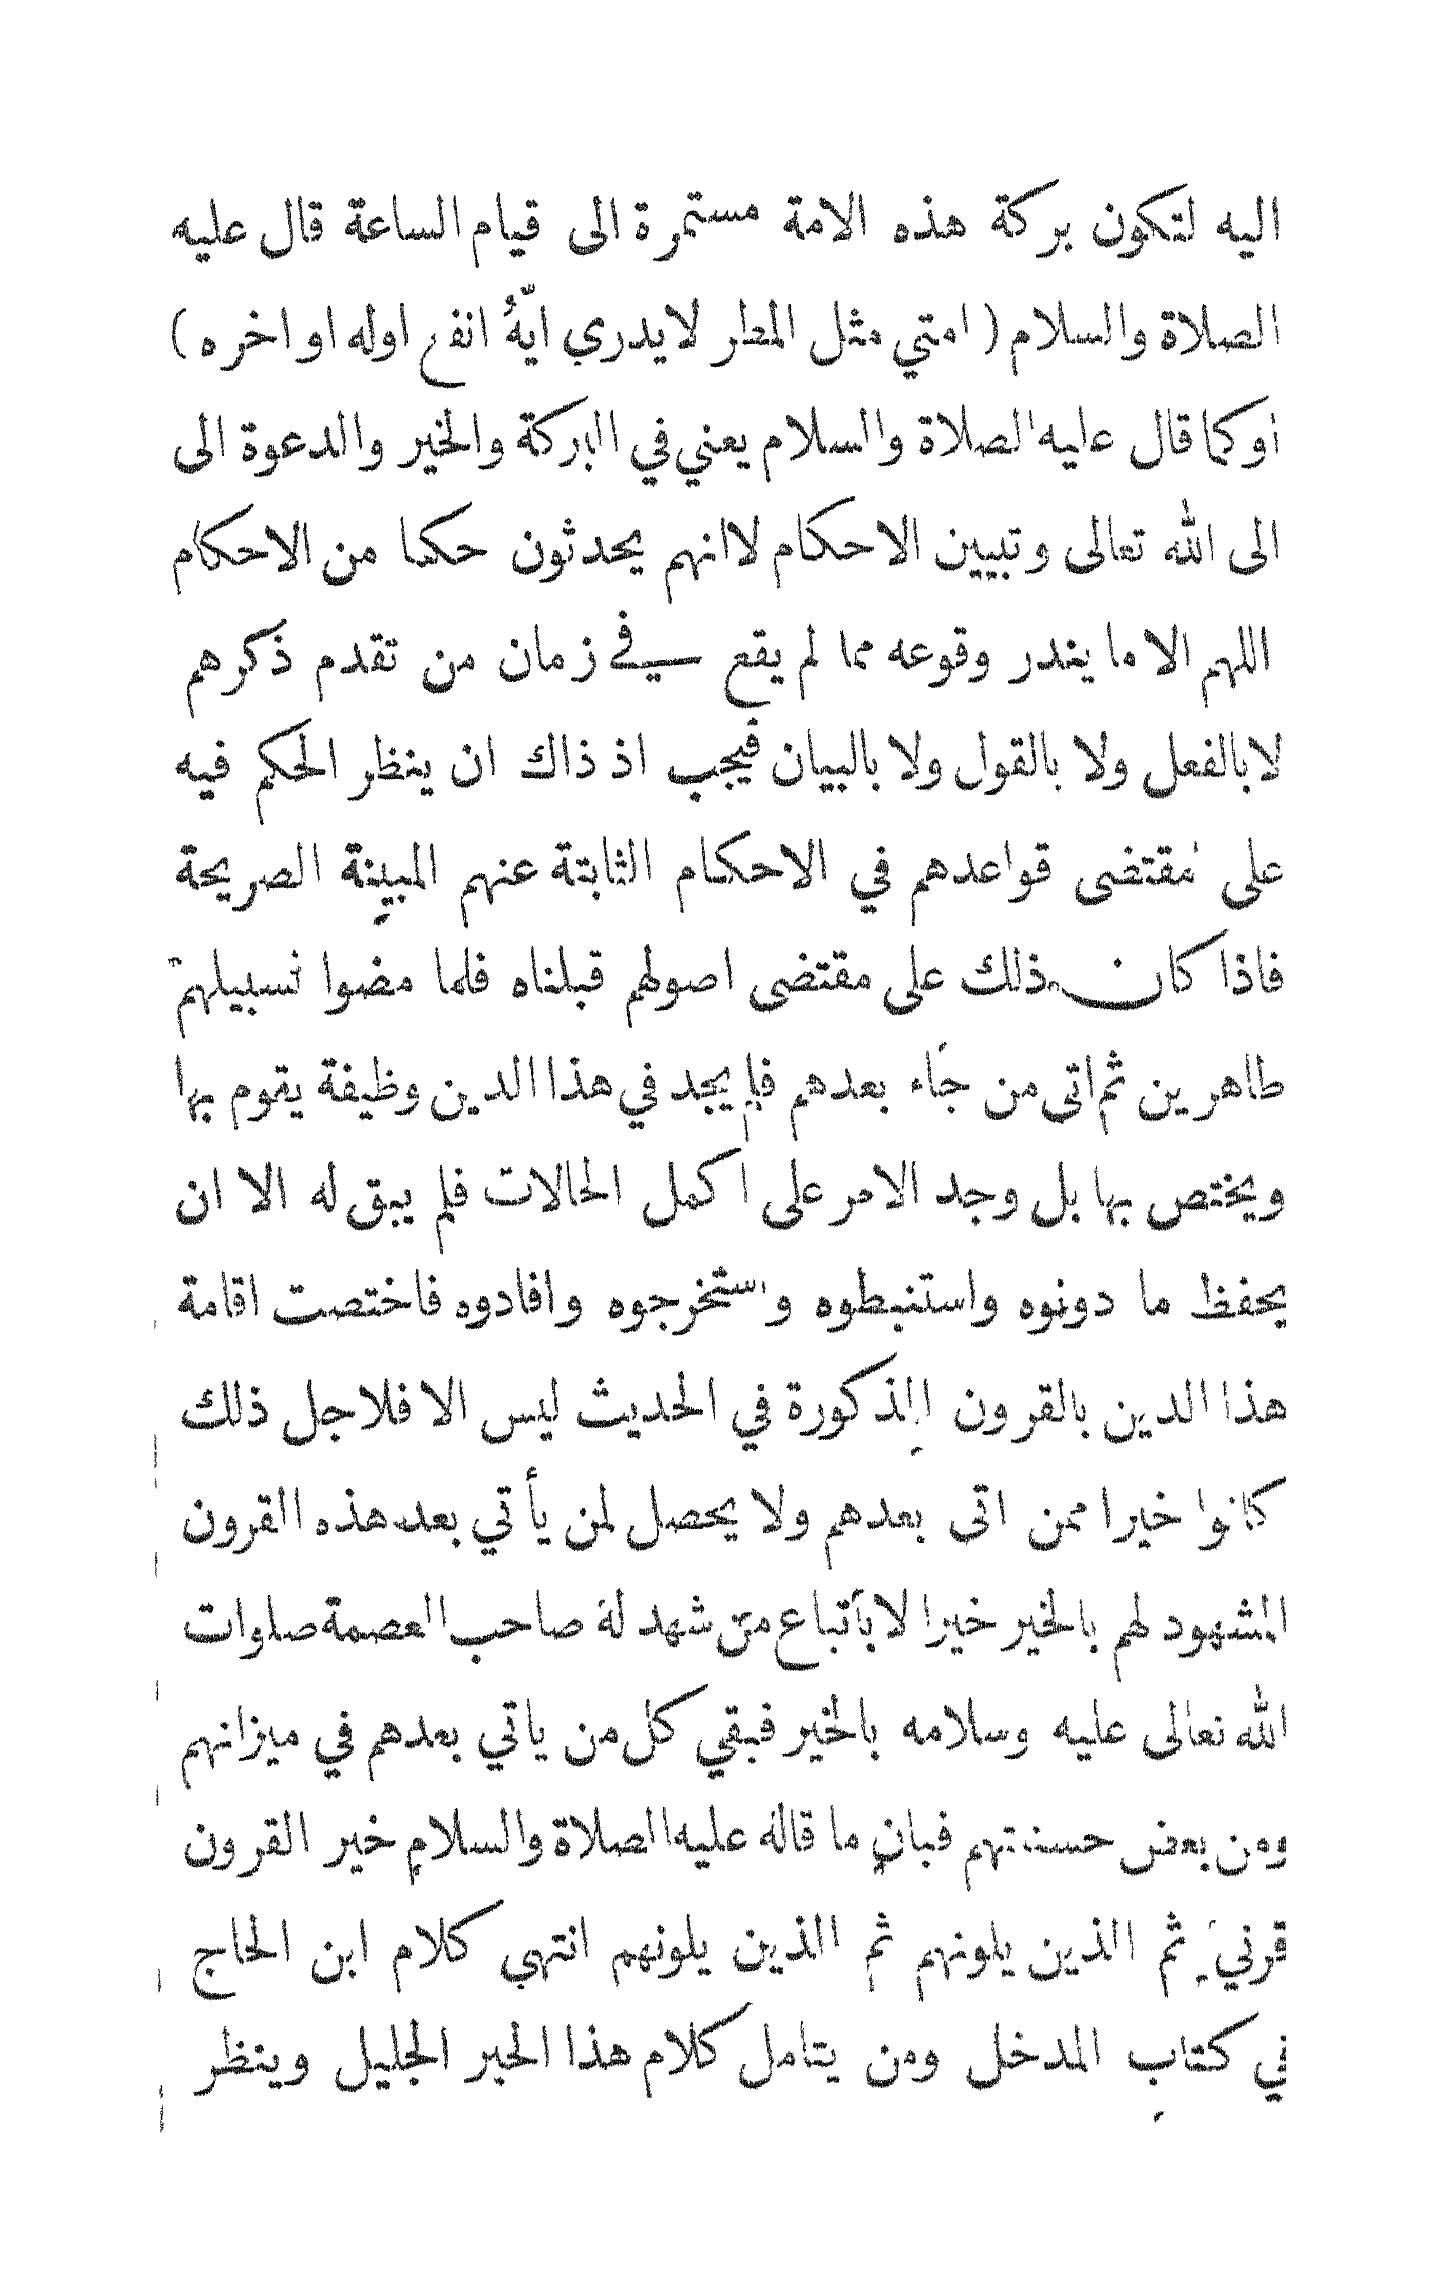 اليه لتكون بركة هذه الامة مستمرة الى قيام الساعة قال عليه
الصلاة والسلام ( امتي مثل المطر لا يدري ايّهُ انفع اوله او اخره )
اوكما قال عليه الصلاة والسلام يعني في البركة والخير والدعوة الى
الى الله تعالى وتبيين الاحكام لا انهم يحدثون حكما من الاحكام
اللهم الا ما يندر وقوعه مما لم يقع في زمان من تقدم ذكرهم
لا بالفعل ولا بالقول ولا بالبيان فيجب اذ ذاك ان ينظر الحكم فيه
على مقتضى قواعدهم في الاحكام الثابتة عنهم المبينة الصريحة
فاذا كان ذلك على مقتضى اصولهم قبلناه فلما مضوا لسبيلهم
طاهرين ثم اتى من جاء بعدهم فلم يجد في هذا الدين وظيفة يقوم بها
ويختص بها بل وجد الامر على اكمل الحالات فلم يبق له الا ان
يحفظ ما دونوه واستنبطوه واستخرجوه وافادوه فاختصت اقامة
هذا الدين بالقرون المذكورة في الحديث ليس الا فلاجل ذلك
كانوا خيرا ممن اتى بعدهم ولا يحصل لمن يأتي بعد هذه القرون
المشهود لهم بالخير خيرا لا بأتباع من شهد له صاحب العصمة صلوات
الله تعالى عليه وسلامه بالخير فبقي كل من ياتي بعدهم في ميزانهم
ومن بعض حسناتهم فبان ما قاله عليه الصلاة والسلام خير القرون
قرني ثم الذين يلونهم ثم الذين يلونهم انتهى كلام ابن الحاج
في كتاب المدخل ومن يتامل كلام هذا الحبر الجليل وينظر